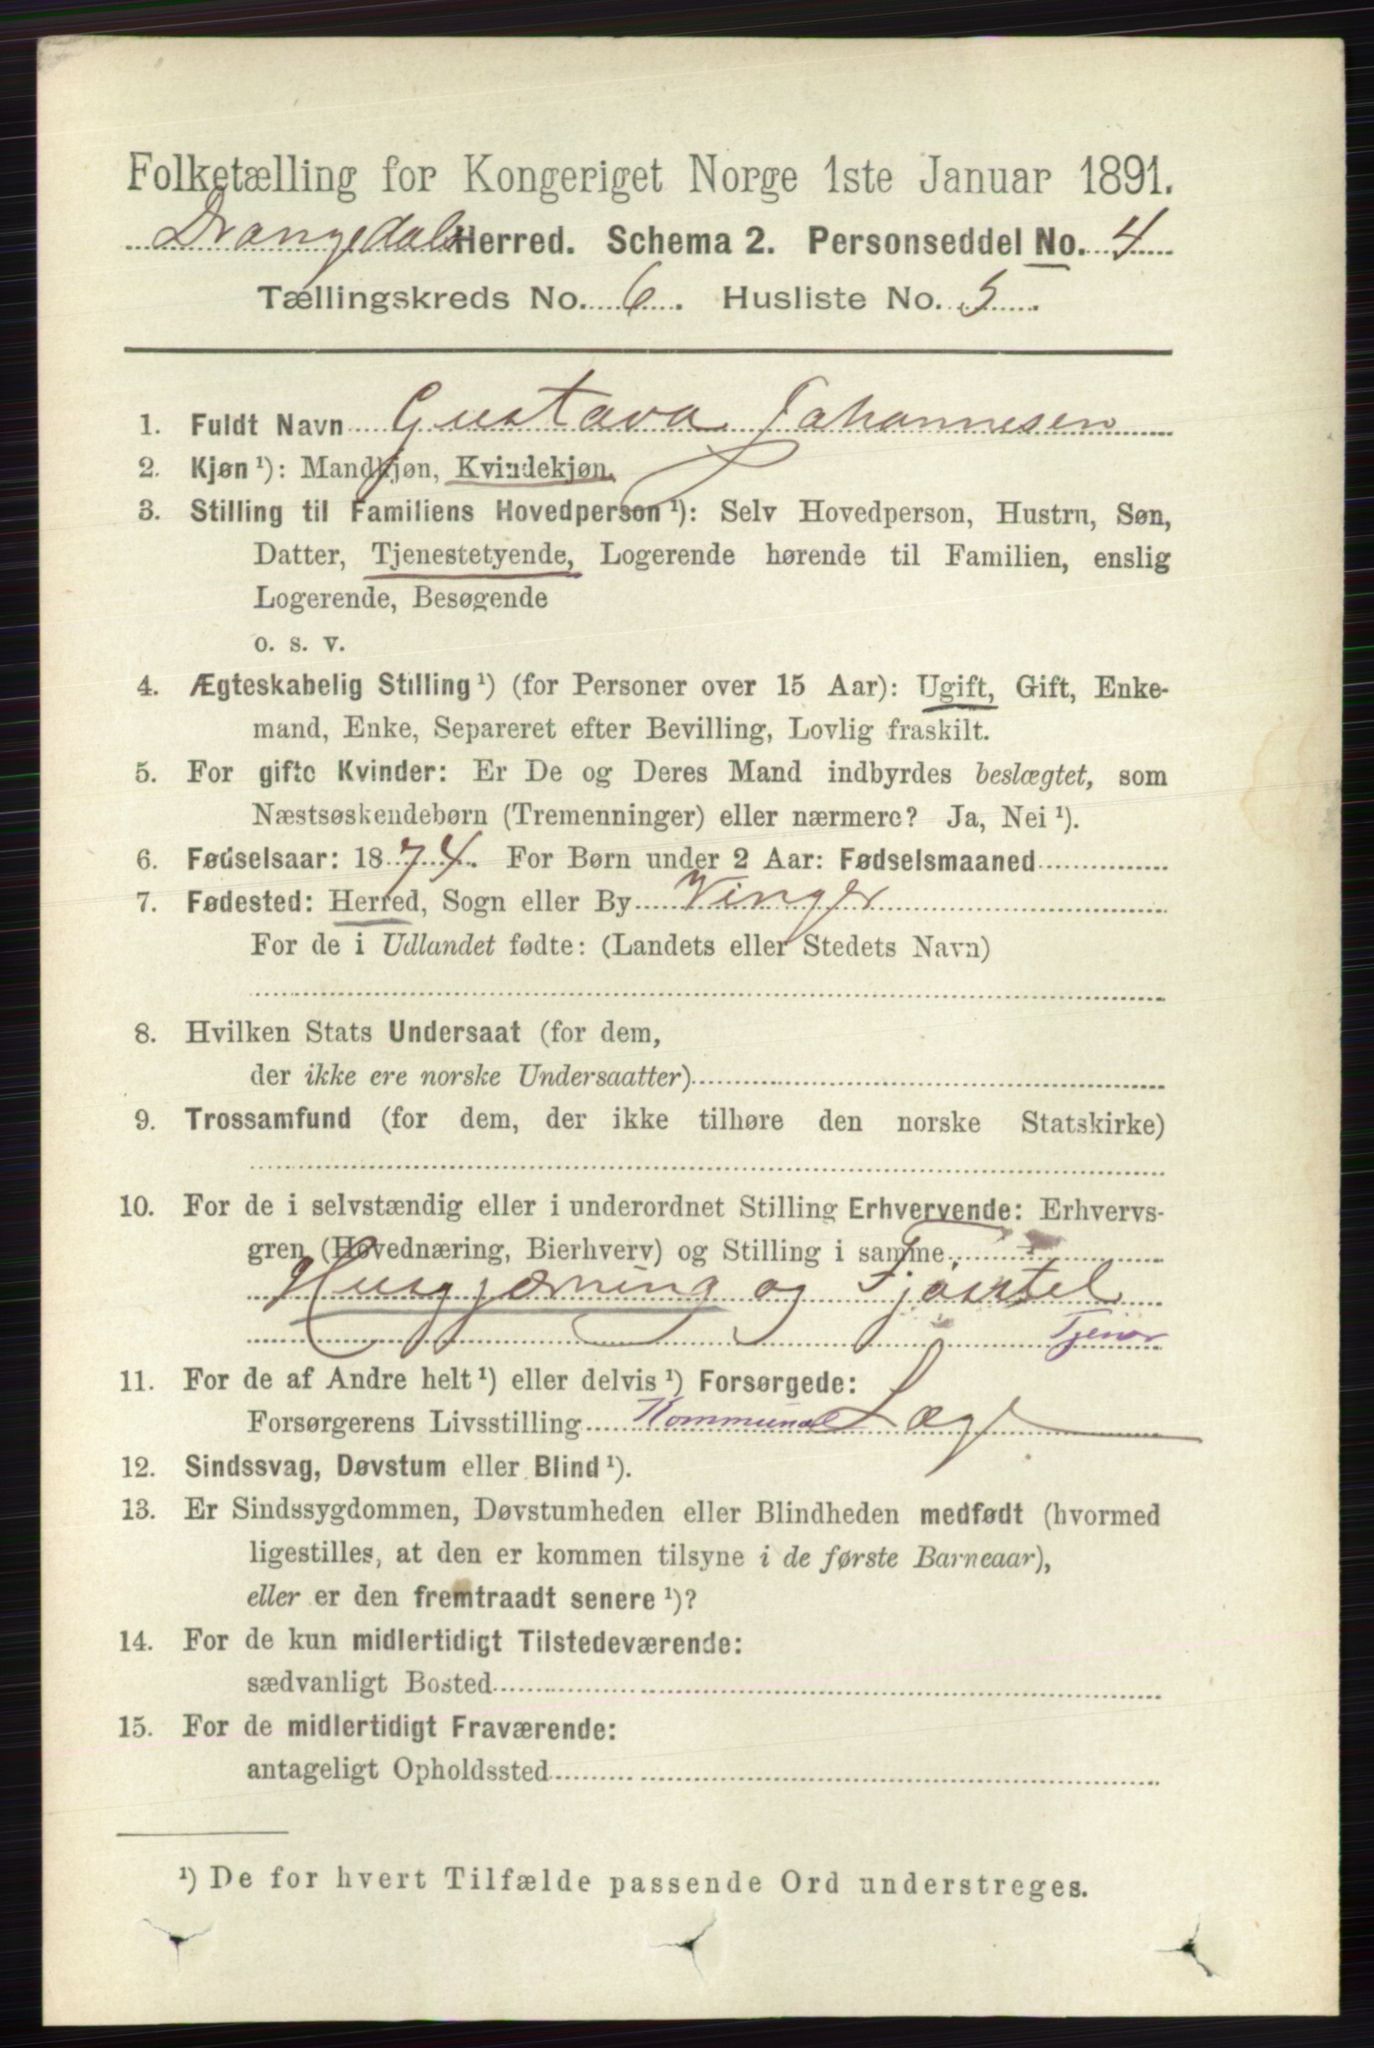 Folketælling for Kongeriget Norge 1ste Januar 1891.
Drangedals Herred. Schema 2. Personseddel No. 4
Tællingskreds No. 6. Husliste No. 5
1. Fuldt Navn Gustava Johannesen
2. Kjøn¹): Mandkjøn, Kvindekjøn.
3. Stilling til Familiens Hovedperson¹): Selv Hovedperson, Hustru, Søn,
Datter, Tjenestetyende, Logerende hørende til Familien, enslig
Logerende, Besøgende
o. s. v.
4. Ægteskabelig Stilling¹) (for Personer over 15 Aar): Ugift, Gift, Enke-
mand, Enke, Separeret efter Bevilling, Lovlig fraskilt.
5. For gifte Kvinder: Er De og Deres Mand indbyrdes beslægtet, som
Næstsøskendebørn (Tremenninger) eller nærmere? Ja, Nei¹).
6. Fødselsaar: 1874. For Børn under 2 Aar: Fødselsmaaned
7. Fødested: Herred, Sogn eller By Vinger
For de i Udlandet fødte: (Landets eller Stedets Navn)
8. Hvilken Stats Undersaat (for dem,
der ikke ere norske Undersaatter)
9. Trossamfund (for dem, der ikke tilhøre den norske Statskirke)
10. For de i selvstændig eller i underordnet Stilling Erhvervende: Erhvervs-
gren (Hovednæring, Bierhverv) og Stilling i samme
Husgjerning og Fjøsstel
Tjener
11. For de af Andre helt¹) eller delvis¹) Forsørgede:
Forsørgerens Livsstilling Kommunal Læge
12. Sindssvag, Døvstum eller Blind¹).
13. Er Sindssygdommen, Døvstumheden eller Blindheden medfødt (hvormed
ligestilles, at den er kommen tilsyne i de første Barneaar),
eller er den fremtraadt senere¹)?
14. For de kun midlertidigt Tilstedeværende:
sædvanligt Bosted
15. For de midlertidigt Fraværende:
antageligt Opholdssted
¹) De for hvert Tilfælde passende Ord understreges.